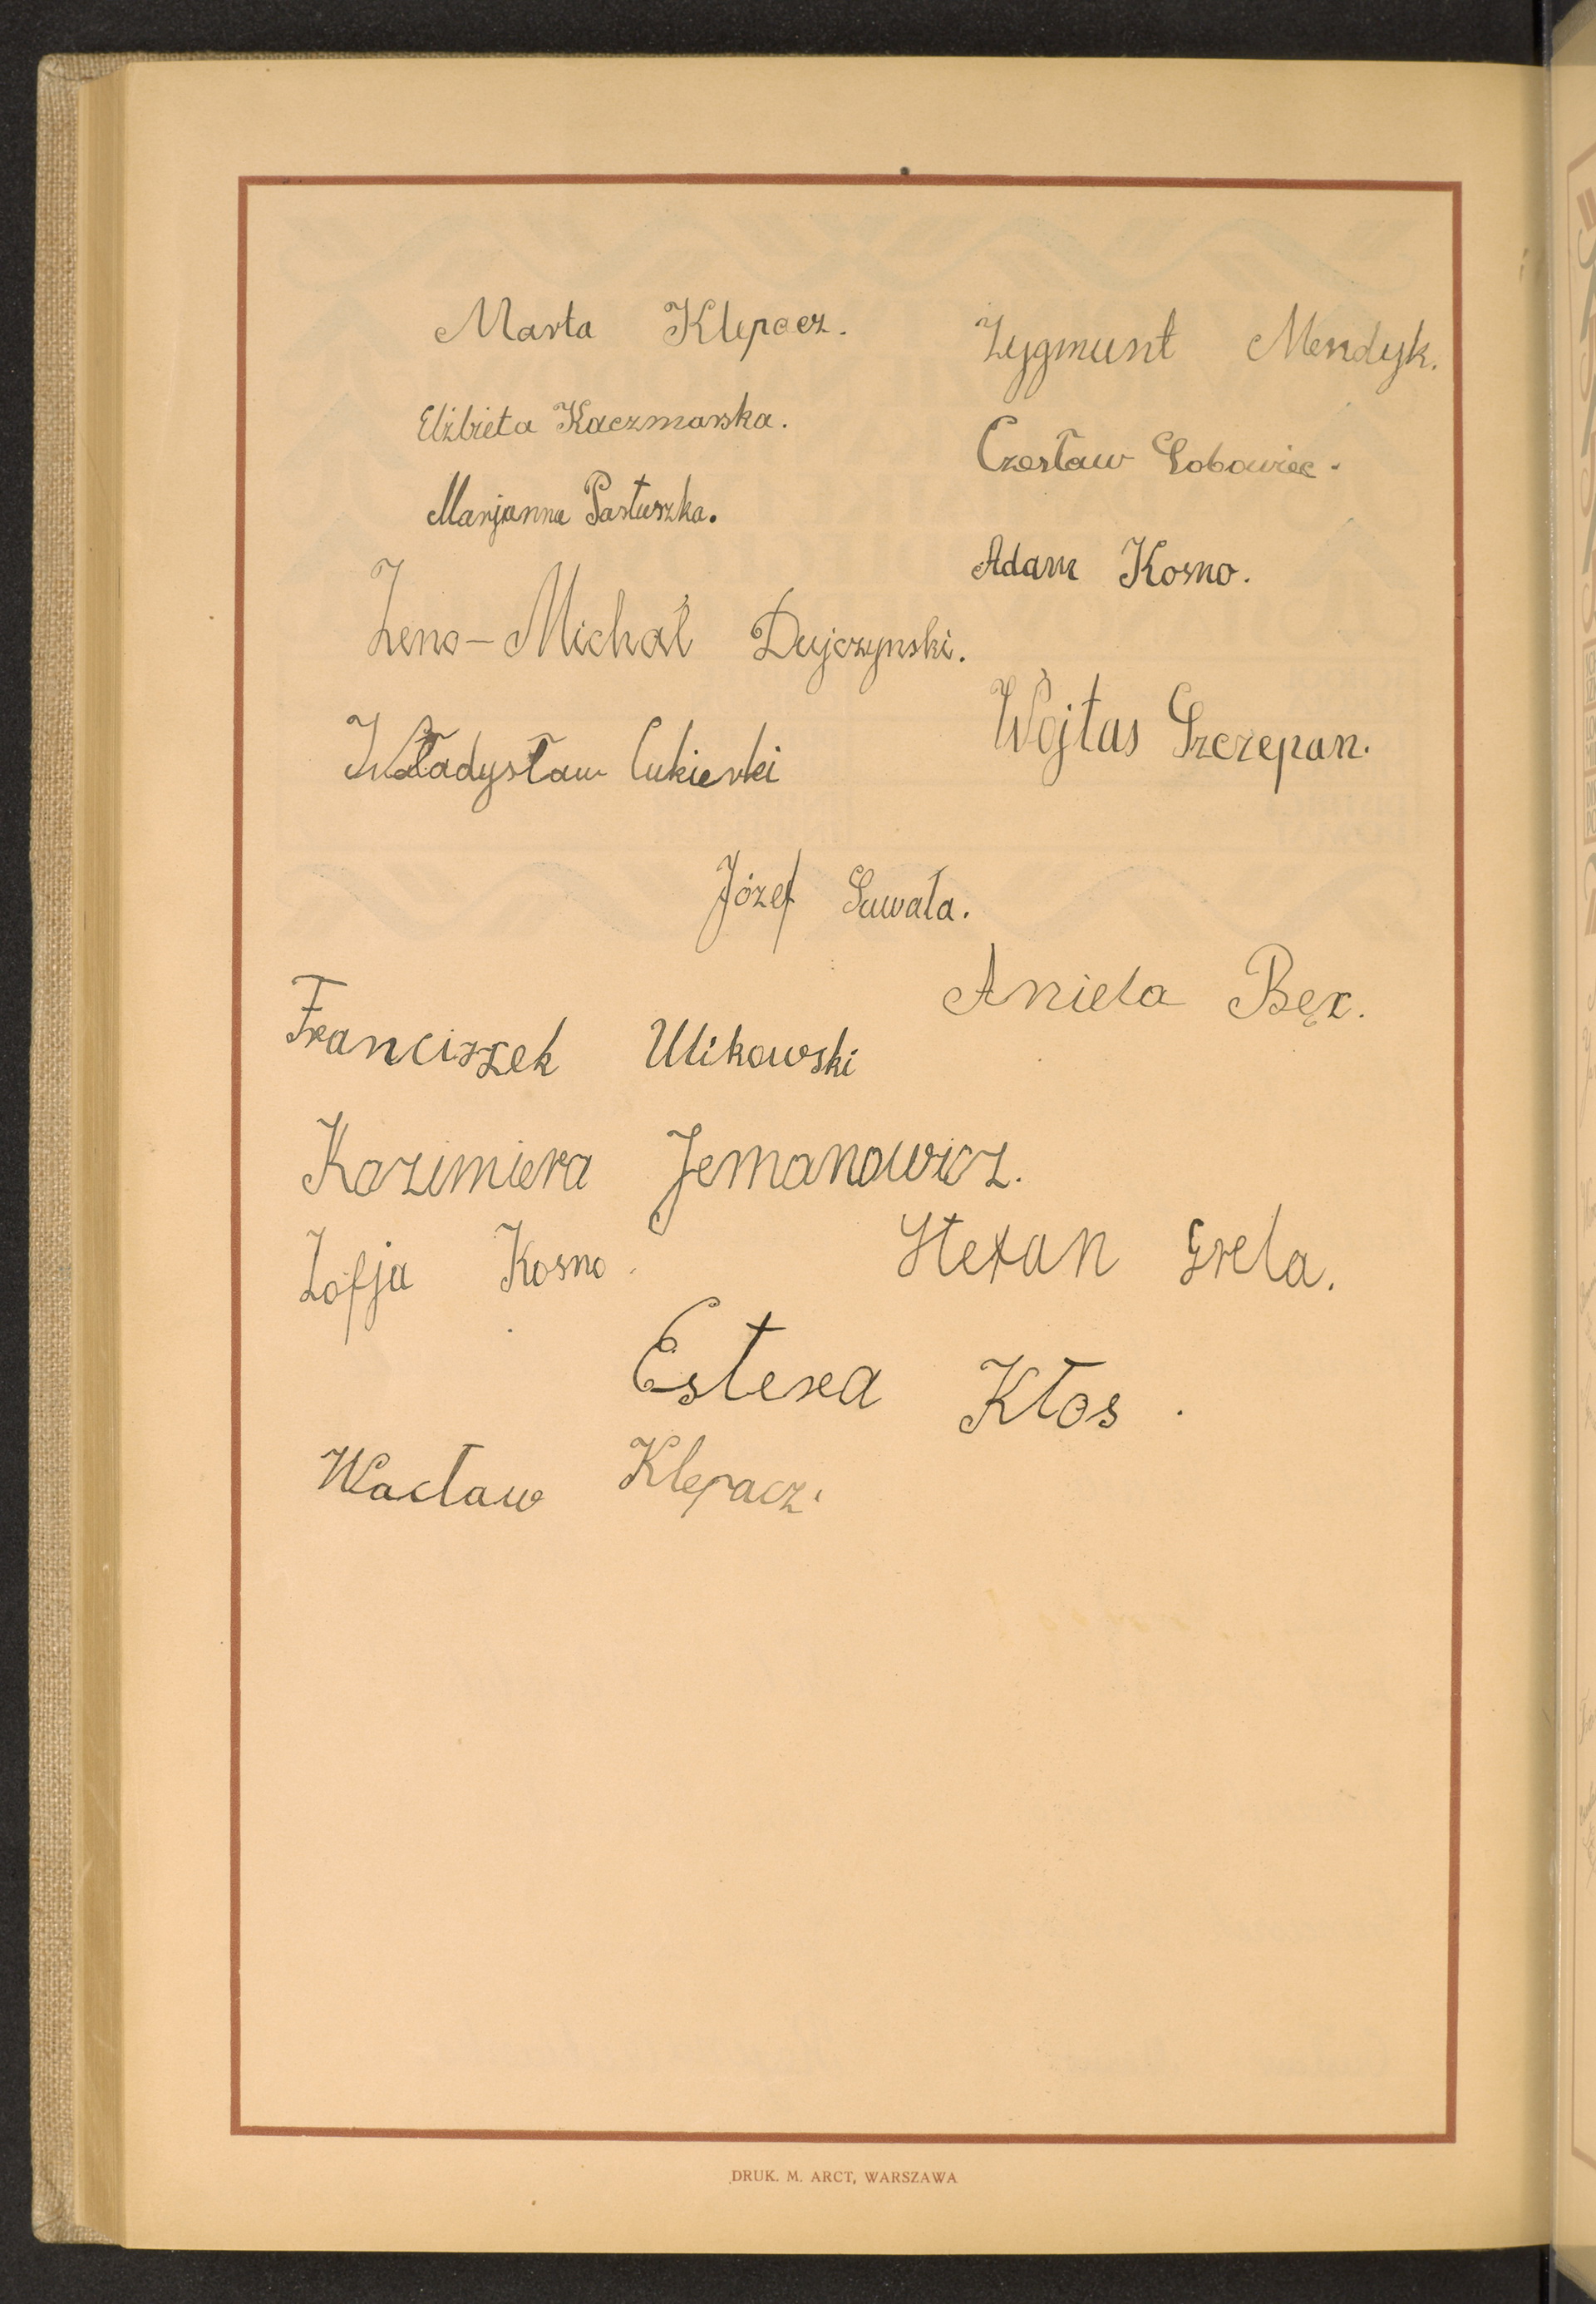 Marta Klepacz.
Zygmunt Mendyk.
Elżbieta Kaczmarska.
Czesław Sobowiec.
Marjanna Pastuszka.
Adam Kosno.
Zeno-Michał Dujczynski.
Wojtas Szczepan.
Władysław Cukierski
Józef Suwała.
Aniela Bęx.
Franciszek Ulikowski
Kazimiera Jemanowicz.
Zofja Kosno.
Stefan Grela.
Estera Kłos.
Wacław Klepacz.
DRUK. M. ARCT, WARSZAWA